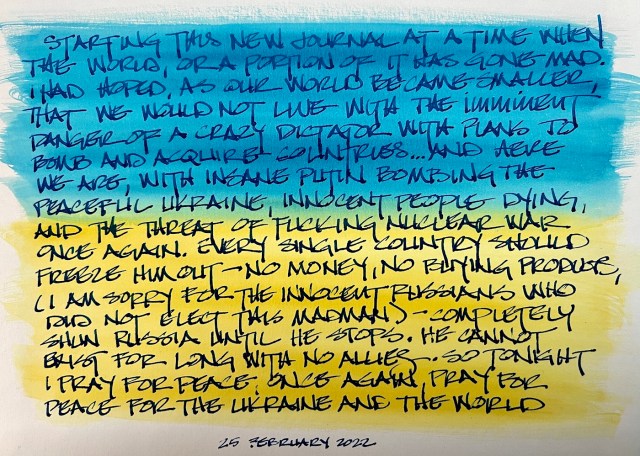 STARTING THIS NEW JOURNAL AT A TIME WHEN
THE WORLD, OR A PORTION OF IT HAS GONE MAD.
I HAD HOPED, AS OUR WORLD BECAME SMALLER,
THAT WE WOULD NOT LIVE WITH THE IMMINENT
DANGER OF A CRAZY DICTATOR WITH PLANS TO
BOMB AND ACQUIRE COUNTRIES...AND HERE
WE ARE, WITH INSANE PUTIN BOMBSING THE
PEACEFUL UKRAINE, INNOCENT PEOPLE DYING,
AND THE THREAT OF FUCKING NUCLEAR WAR
ONCE AGAIN. EVERY SINGLE COUNTRY SHOULD
FREEZE HIM OUT - NO MONEY, NO BUYING PRODUCTS,
(I AM SORRY FOR THE INNOCENT RUSSIANS WHO
DID NOT ELECT THIS MADMAN) - COMPLETELY
SHUN RUSSIA UNTIL HE STOPS. HE CANNOT
EXIST FOR LONG WITH NO ALLIES. SO TONIGHT
I PRAY FOR PEACE. ONCE AGAIN, PRAY FOR
PEACE FOR THE UKRAINE AND THE WORLD
25 FEBRUARY 2022